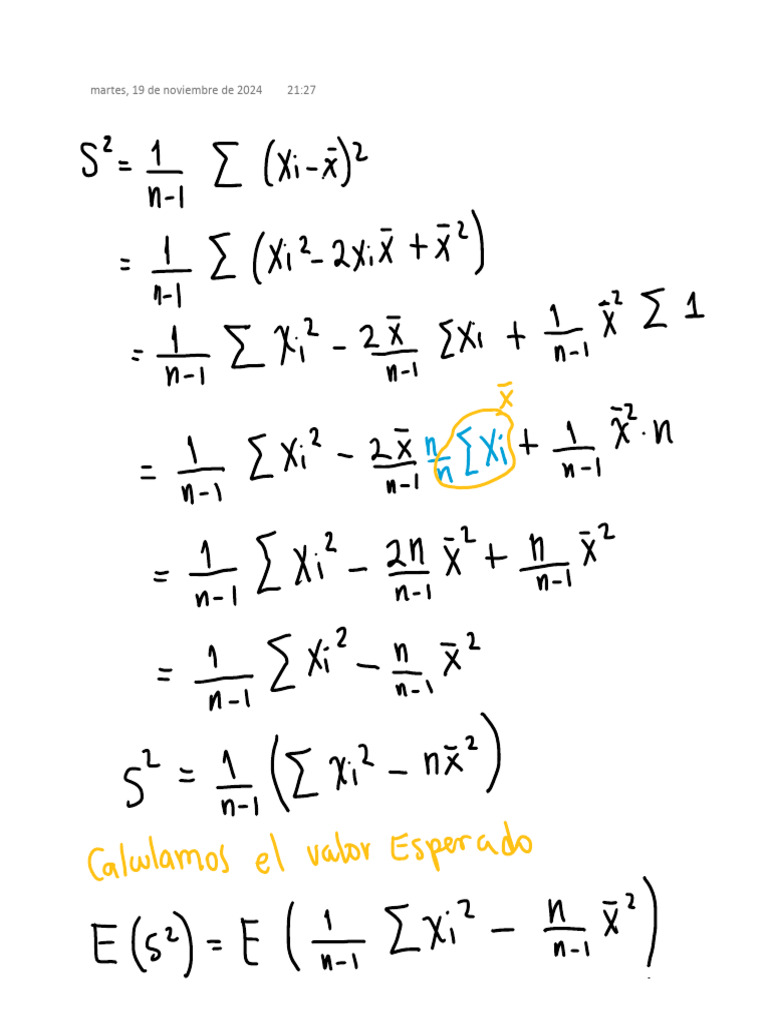 martes, 19 de noviembre de 2024 21:27
S² = 1/(n-1) Σ (xi - x̄)²
= 1/(n-1) Σ (xi² - 2xi x̄ + x̄²)
= 1/(n-1) Σ xi² - 2x̄/(n-1) Σxi + 1/(n-1) x̄² Σ 1
x̄
= 1/(n-1) Σ xi² - 2x̄/(n-1) n/n Σxi + 1/(n-1) x̄² · n
= 1/(n-1) Σ xi² - 2n/(n-1) x̄² + n/(n-1) x̄²
= 1/(n-1) Σ xi² - n/(n-1) x̄²
S² = 1/(n-1) (Σ xi² - nx̄²)
Calculamos el valor Esperado
E(s²) = E (1/(n-1) Σxi² - n/(n-1) x̄²)